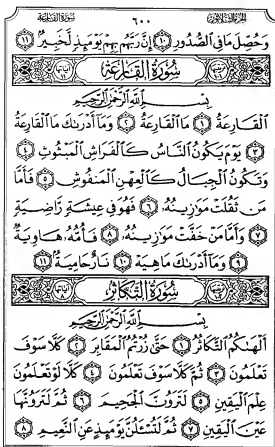 الجزء الثلاثون ٦٠٠ سورة القارعة
وَحُصِّلَ مَا فِي الصُّدُورِ ١٠ إِنَّ رَبَّهُم بِهِمْ يَوْمَئِذٍ لَّخَبِيرٌ ١١
سُورَةُ القَارِعَةِ
بِسْمِ اللَّهِ الرَّحْمَٰنِ الرَّحِيمِ
الْقَارِعَةُ ١ مَا الْقَارِعَةُ ٢ وَمَا أَدْرَىٰكَ مَا الْقَارِعَةُ
٣ يَوْمَ يَكُونُ النَّاسُ كَالْفَرَاشِ الْمَبْثُوثِ ٤
وَتَكُونُ الْجِبَالُ كَالْعِهْنِ الْمَنفُوشِ ٥ فَأَمَّا
مَن ثَقُلَتْ مَوَازِينُهُ ٦ فَهُوَ فِي عِيشَةٍ رَّاضِيَةٍ
٧ وَأَمَّا مَنْ خَفَّتْ مَوَازِينُهُ ٨ فَأُمُّهُ هَاوِيَةٌ
٩ وَمَا أَدْرَىٰكَ مَا هِيَهْ ١٠ نَارٌ حَامِيَةٌ ١١
سُورَةُ التَّكَاثُرِ
بِسْمِ اللَّهِ الرَّحْمَٰنِ الرَّحِيمِ
أَلْهَىٰكُمُ التَّكَاثُرُ ١ حَتَّىٰ زُرْتُمُ الْمَقَابِرَ ٢ كَلَّا سَوْفَ
تَعْلَمُونَ ٣ ثُمَّ كَلَّا سَوْفَ تَعْلَمُونَ ٤ كَلَّا لَوْ تَعْلَمُونَ
عِلْمَ الْيَقِينِ ٥ لَتَرَوُنَّ الْجَحِيمَ ٦ ثُمَّ لَتَرَوُنَّهَا
عَيْنَ الْيَقِينِ ٧ ثُمَّ لَتُسْـَٔلُنَّ يَوْمَئِذٍ عَنِ النَّعِيمِ ٨